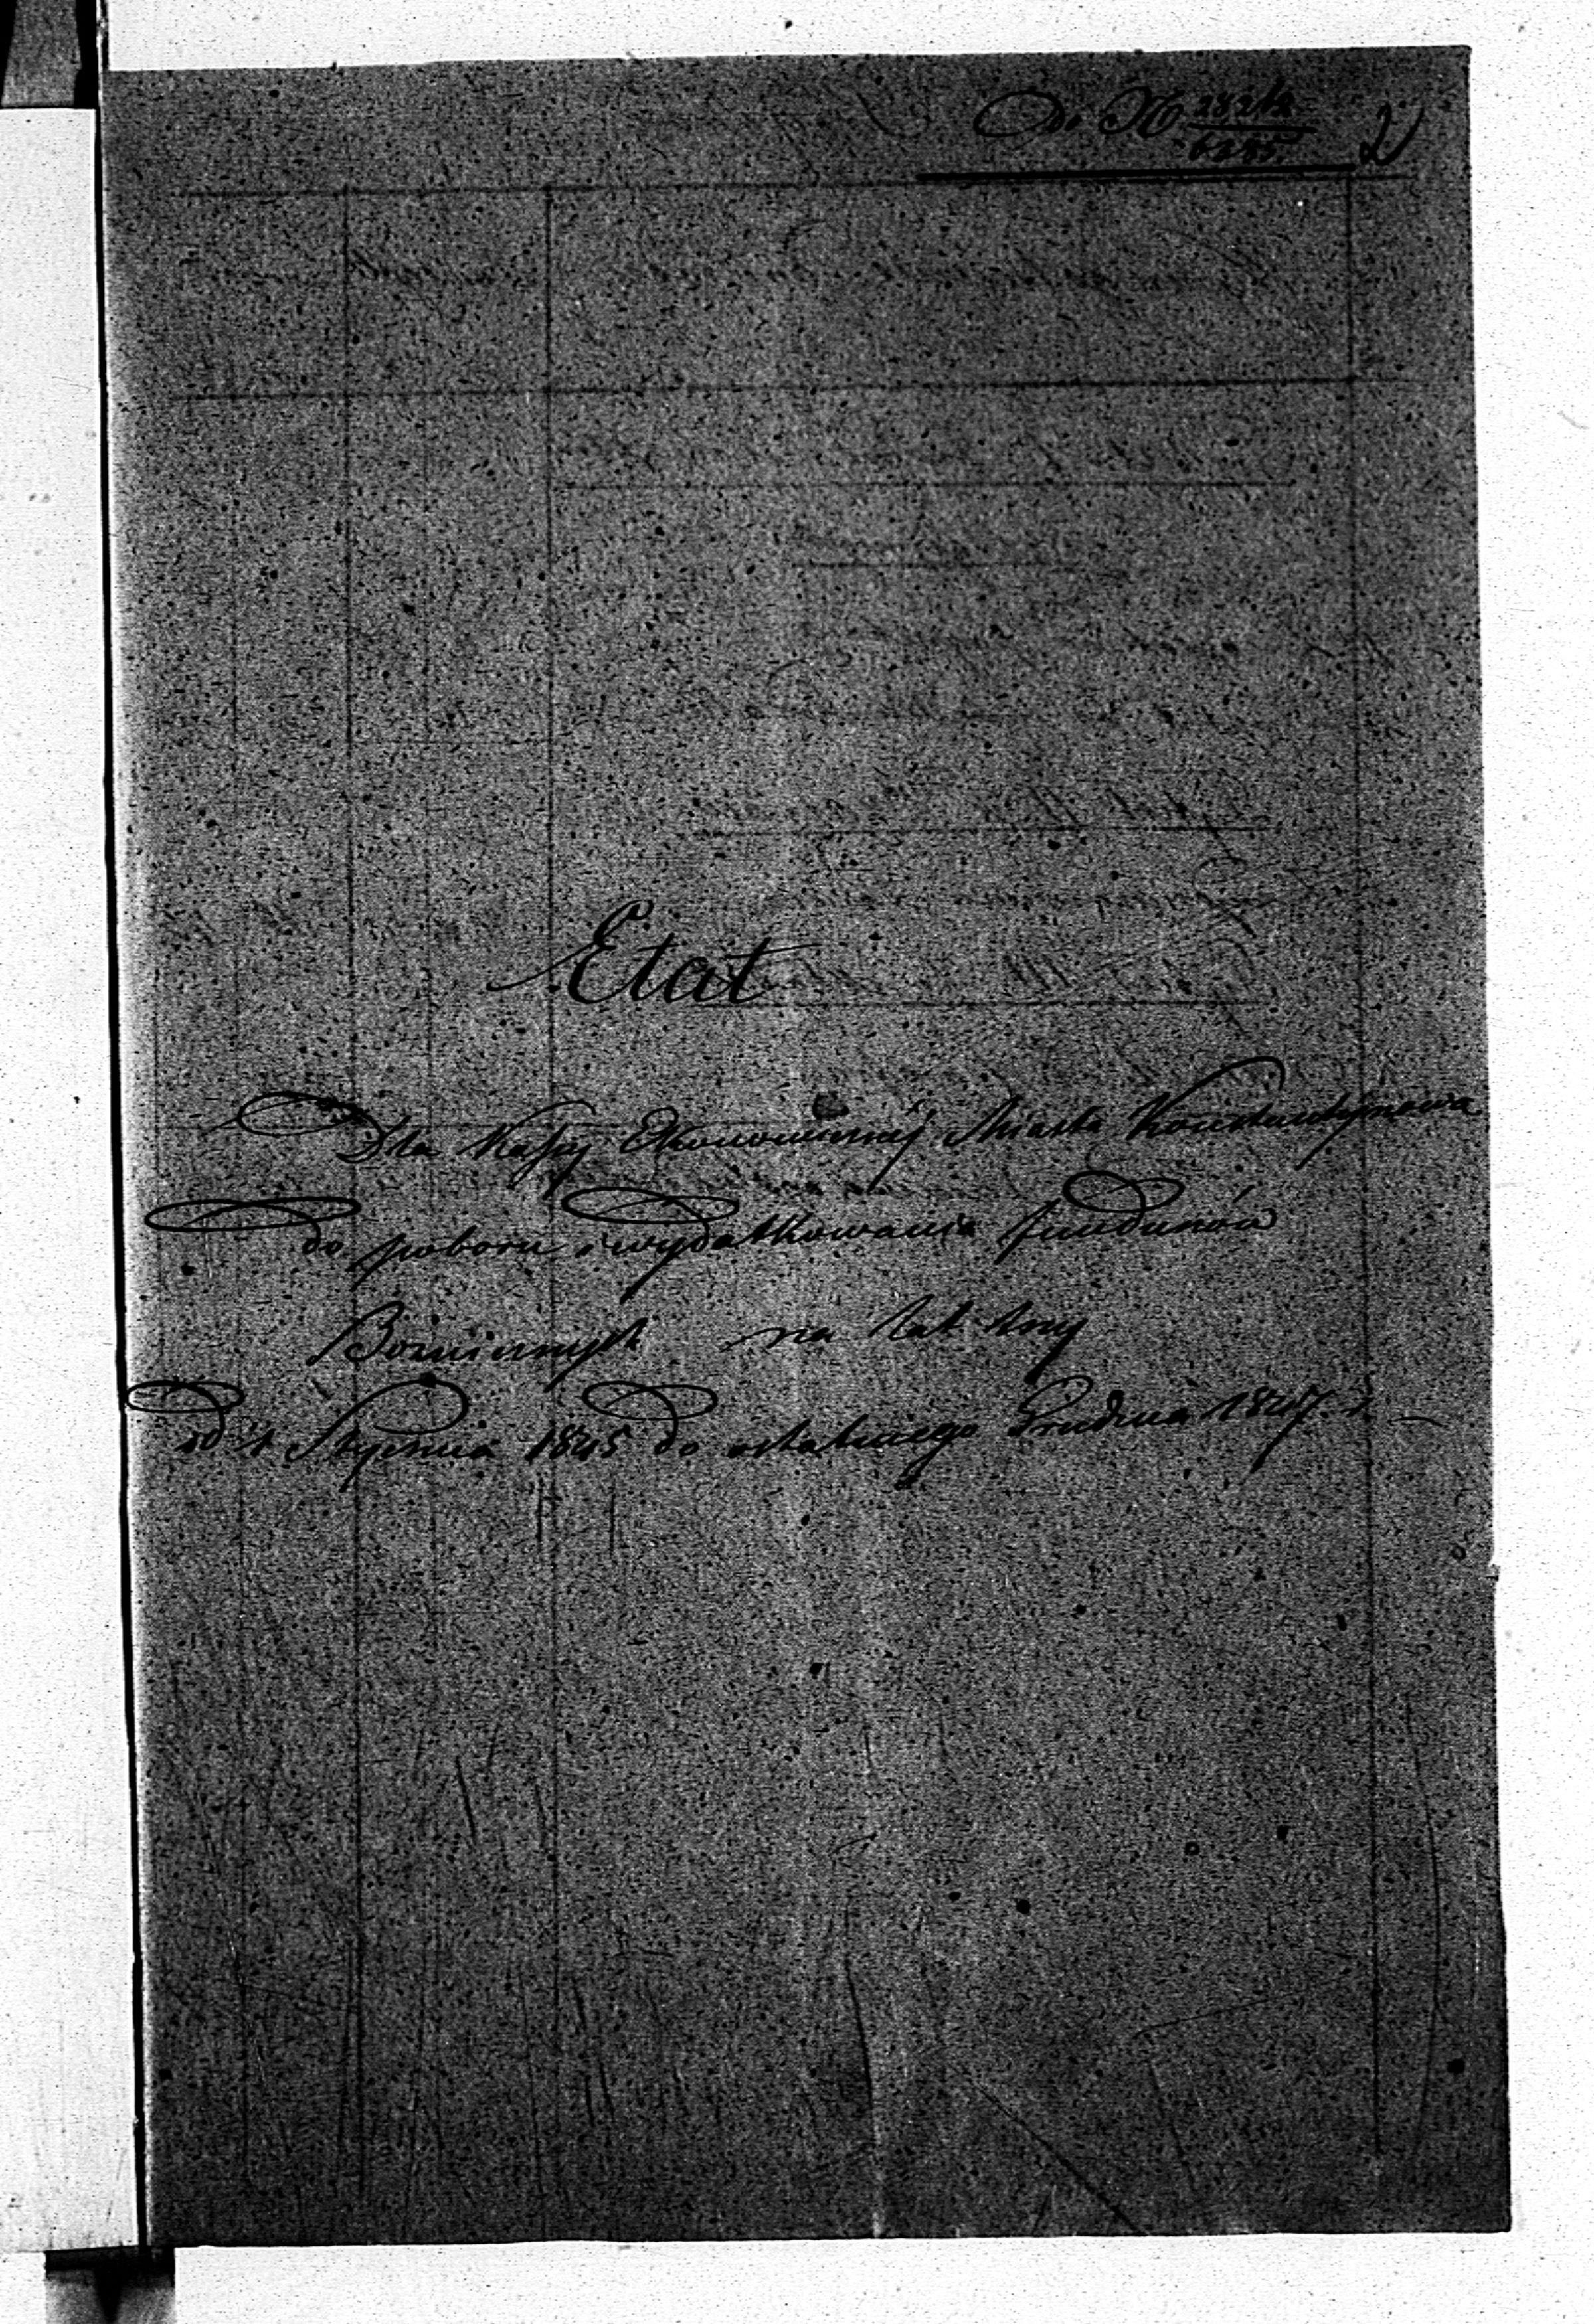 Do N 28268
6285
2
Etat
Dla Kassy Ekonomicznej Miasta Konstantynowa
do poboru i wydatkowania funduszów
Bożnicznych na lat trzy
od 1 Stycznia 1845 do ostatniego Grudnia 1847 r.